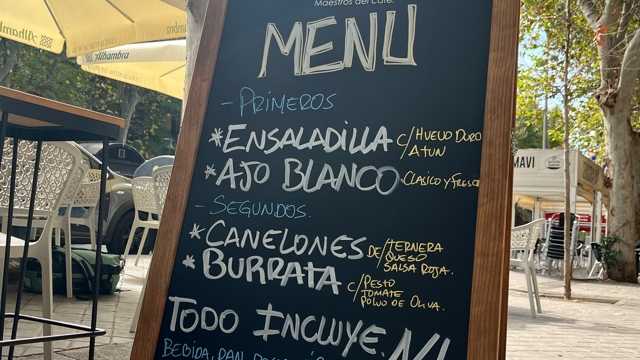 Maestros del Café.
MENU
- PRIMEROS
* ENSALADILLA C/HUEVO DURO
/ATUN
* AJO BLANCO. CLASICO Y FRESC
- SEGUNDOS.
* CANELONES DE/TERNERA
QUESO
SALSA ROJA.
* BURRATA C/PESTO
TOMATE
POLVO DE OLIVA.
TODO INCLUYE
BEBIDA, PAN,
Alhambra
Alhambra
MAVI